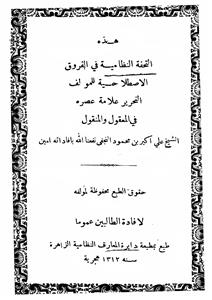 هذه
التحفة النظامية في الفروق
الاصطلاحية للمولف
النحرير علامة عصره
في المعقول والمنقول
الشيخ علي اكبر بن محمود النجفي نفعنا الله بافاداته امين
حقوق الطبع محفوظة لمولفه
لافادة الطالبين عموما
طبع بمطبعة دايرة المعارف النظامية الزاهرة
سنه ١٣١٢ هجرية